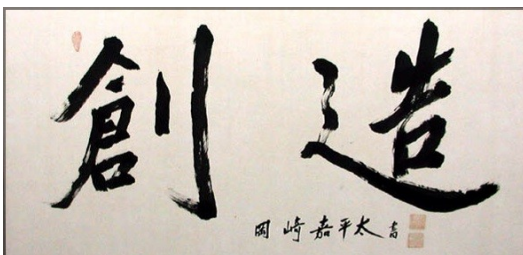 創造
岡崎嘉平太書